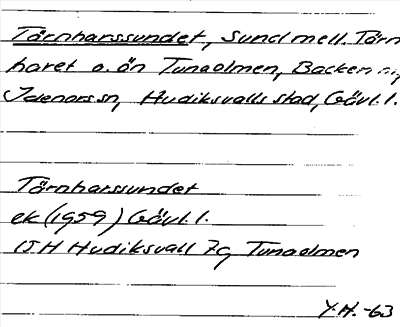 Tärnharssundet, Sund mell. Tärn
haret o. ön Tunaolmen, Backen
Idenors sn, Hudiksvalls stad, Gävl. l.
Tärnharssundet
ek (1959) Gävl. l.
15H Hudiksvall 7g Tunaolmen
Y.H. -63